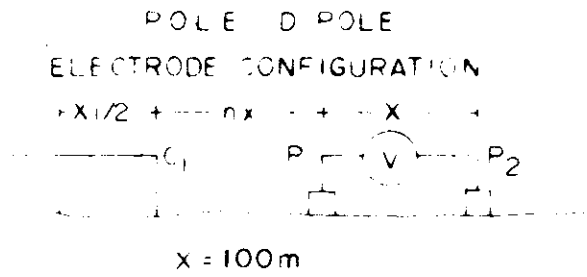 POLE DIPOLE
ELECTRODE CONFIGURATION
X1/2 nx X
C1 P V P2
x = 100m